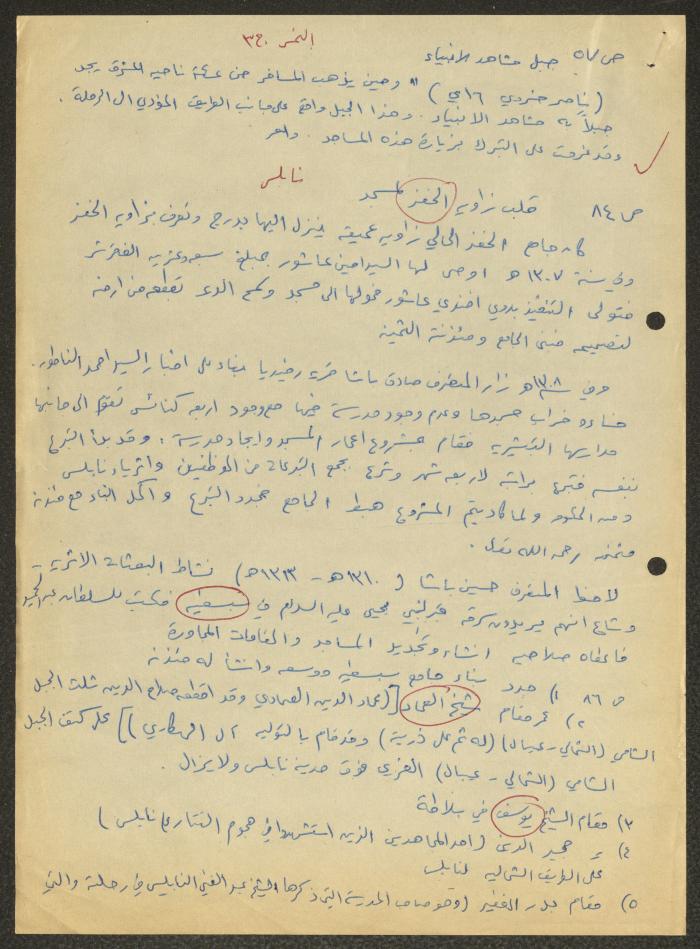 النمر ج٣
ص ٥٧ جبل مشاهد الانبياء
(ناصر خسرو ١٦ي) " وحين يذهب المسافر من عكة ناحية المشرق يجد
جبلاً به مشاهد الانبياء . وهذا الجبل واقع على جانب الطريق المؤدي الى الرملة .
وقد عزمت على التبرك بزيارة هذه المشاهد .
نابلس
ص ٨٤ قلب زاوية الخفز لمسجد
كان جامع الخفز الحالي زاوية عميقة ينزل اليها بدرج وتعرف بزاوية الخفز
وفي سنة ١٣٠٧ هـ اوصى لها السيد امين عاشور بمبلغ سبعة وعشرين الف قرش
فتولى التنفيذ بدوي افندي عاشور فحولها الى مسجد وسمح الورثة بقطعة من ارضه
لتصميمه فبنى الجامع ومئذنته الثمينة
وفي ١٣٠٨هـ زار المتصرف صادق باشا قرية رفيديا بناء على اخبار السيد احمد الناطور.
فساءه خراب مسجدها وعدم وجود مدرسة فيها مع وجود اربعة كنائس تقوم الى جانبها
مدارسها التبشيرية فقام بمشروع اعمار المسجد وايجاد مدرسة . وقد بدأ التبرع
بنفسه فتبرع براتبه لاربعة شهر وشرع بجمع التبرعات من الموظفين واثرياء نابلس
ومن الحكومة ولما كاد يتم المشروع هبط الجامع فجدد التبرع واكمل البناء مع مئذنة
رحمه الله تعالى .
لاحظ المتصرف حسين باشا (١٣١٠هـ - ١٣١٣هـ) نشاط البعثات الاثرية -
وشاع انهم يريدون سرقة قبر النبي يحيى عليه السلام في سبسطيه فكتب للسلطان عبد الحميد
فاعطاه صلاحية انشاء وتجديد المساجد والمقامات المجاورة
ص ٨٦ ١) جدد بناء جامع سبسطيه ووسعه وانشأ له مئذنة
٢) عمر مقام شيخ العماد [(عماد الدين العمادي وقد اقطعه صلاح الدين ثلث الجبل
الشامي (الشمالي - عيبال) (له ثم على ذريته) وقد قام بالتولية آل الهكاري)] على كتف الجبل
الشامي (الشمالي - عيبال) الغربي فوق مدينة نابلس ولا يزال .
٣) مقام الشيخ يوسف في بلاطة
٤) " مجير الدين (احد المجاهدين الذين استشهدوا في هجوم التتار على نابلس)
على الطريق الشمالية لنابلس
٥) مقام بدر الفقير (وهو صاحب المدرسة التي ذكرها الشيخ عبد الغني النابلسي في رحلته والتي